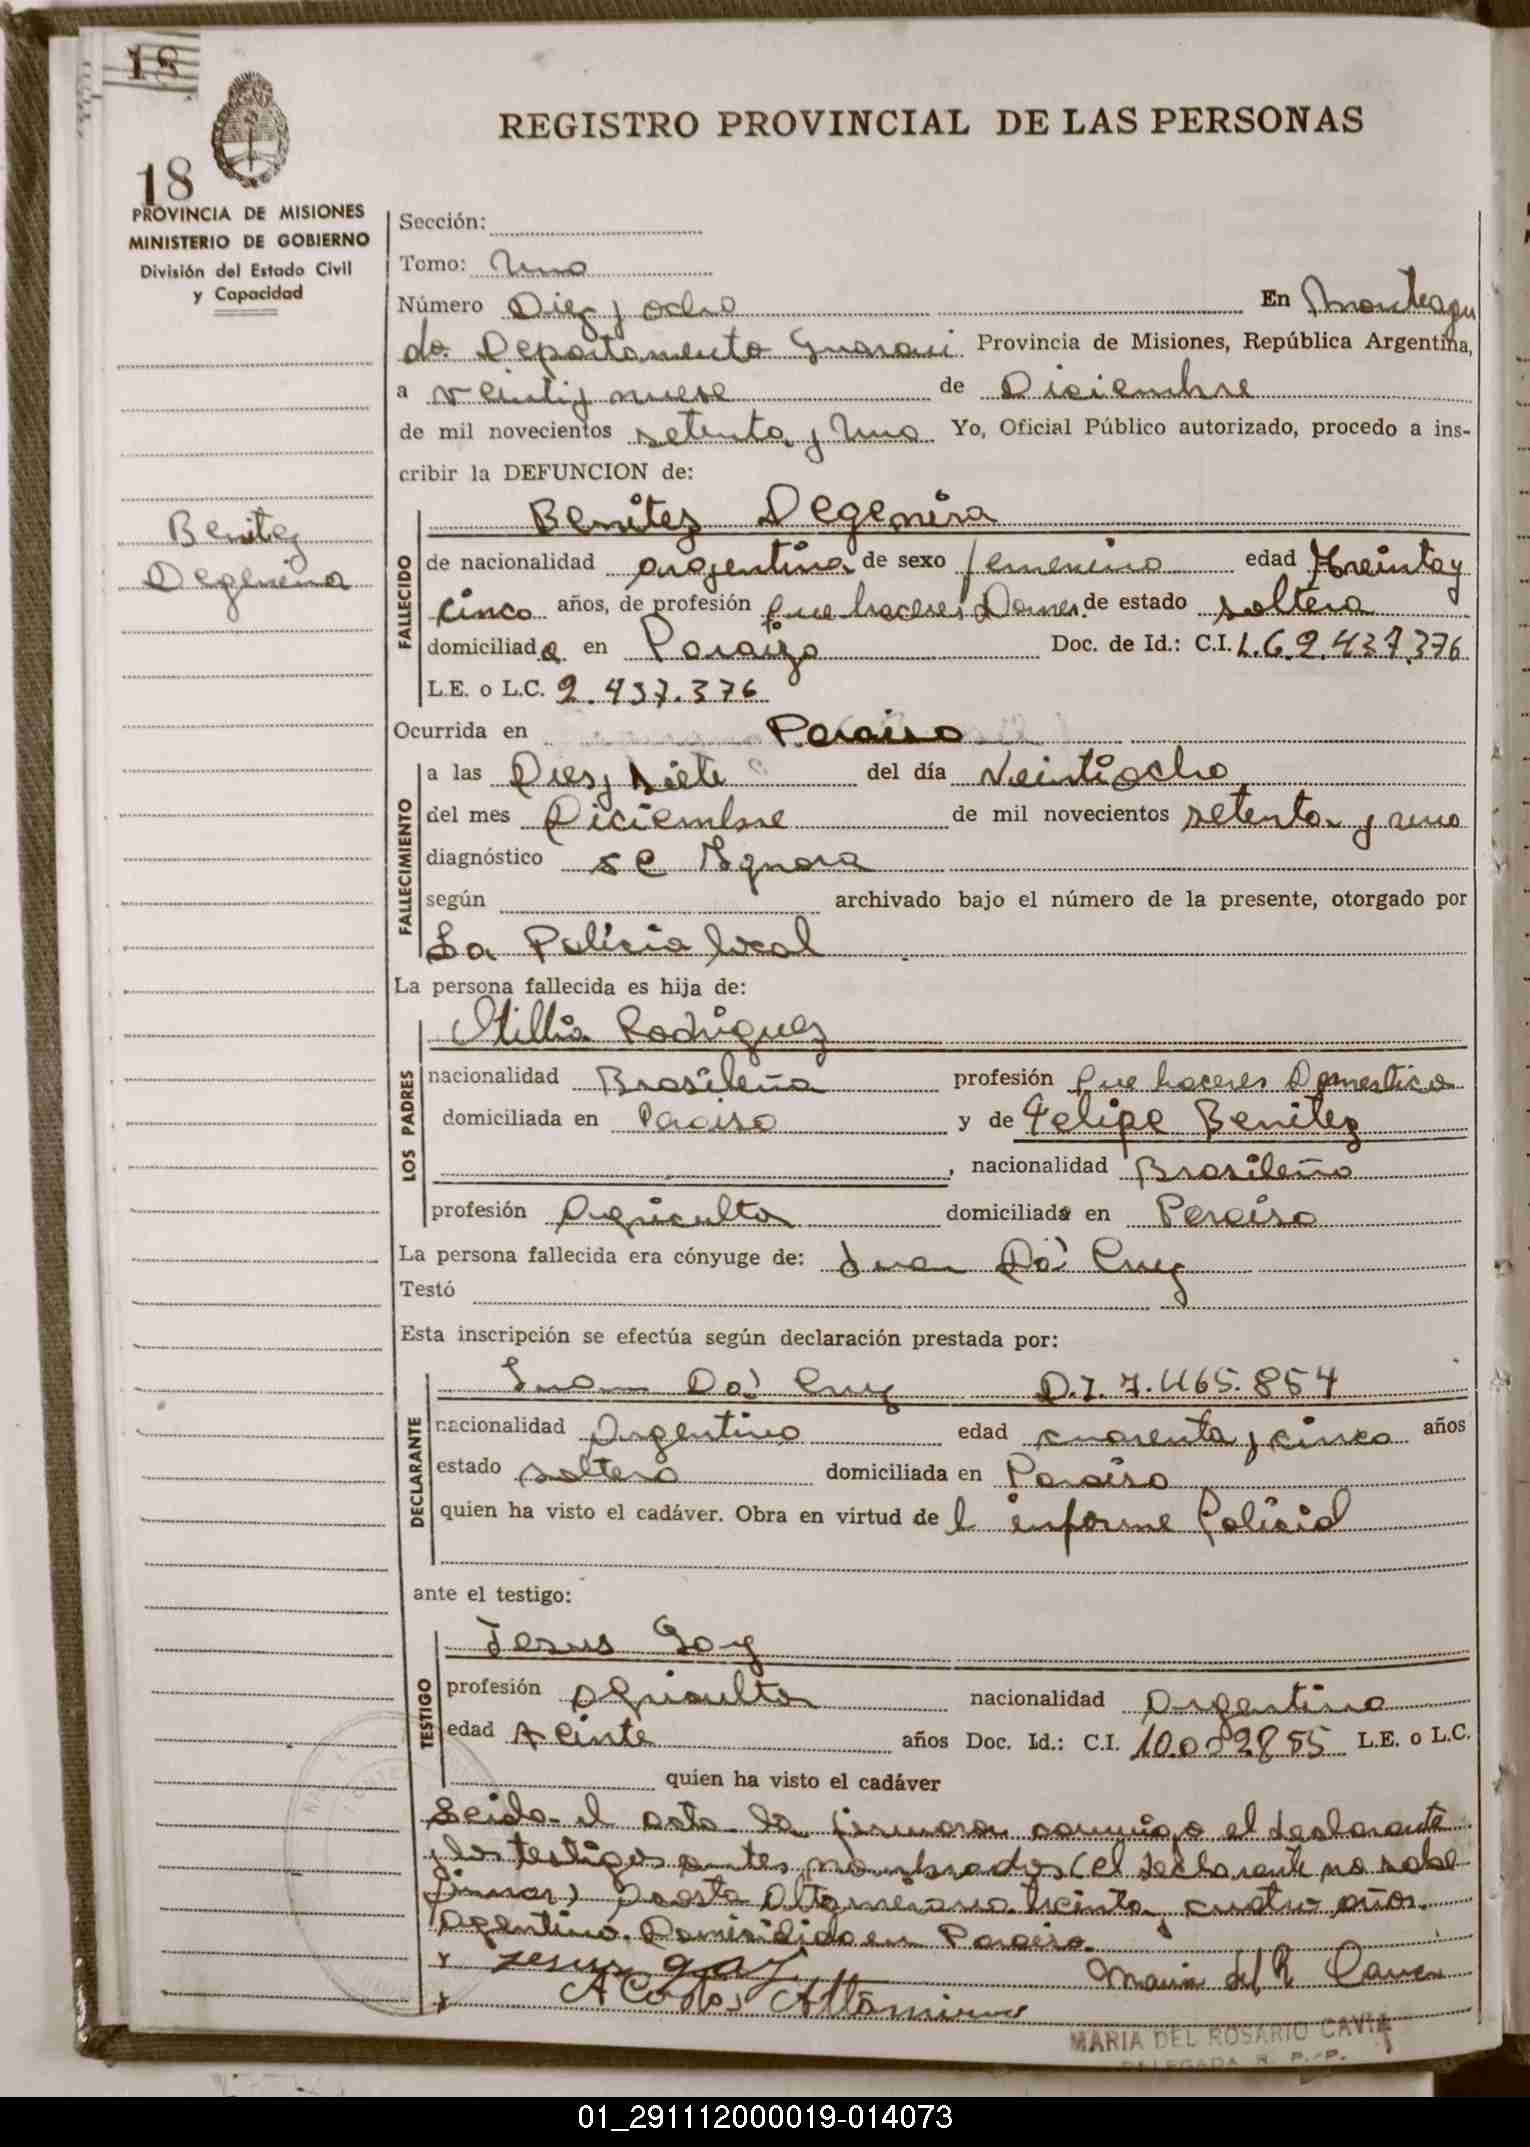 18
18
REGISTRO PROVINCIAL DE LAS PERSONAS
PROVINCIA DE MISIONES
MINISTERIO DE GOBIERNO
División del Estado Civil
y Capacidad
Sección:
Tomo: Uno
Número Diez y ocho En Monteagu
do. Departamento Guarani Provincia de Misiones, República Argentina,
a veinti y nueve de Diciembre
de mil novecientos setenta y Uno Yo, Oficial Público autorizado, procedo a ins-
cribir la DEFUNCION de:
Benitez Degenira
Benitez
Degenira
FALLECIDO
de nacionalidad argentina de sexo femenino edad treinta y
cinco años, de profesión Que haceres Domes. de estado soltera
domiciliada en Paraizo Doc. de Id.: C.I. L.C. 2.437.376
L.E. o L.C. 2.437.376
Ocurrida en Paraiso
FALLECIMIENTO
a las Dies y siete del día Veintiocho
del mes Diciembre de mil novecientos setenta y uno
diagnóstico se Ignora
según archivado bajo el número de la presente, otorgado por
La Policia local
La persona fallecida es hija de:
LOS PADRES
Rodriguez
nacionalidad Brasileña profesión Que haceres Domestico
domiciliada en Paraiso y de Felipe Benitez
, nacionalidad Brasileño
profesión Agricultor domiciliado en Paraiso
La persona fallecida era cónyuge de: Juan Da' Cruz
Testó
Esta inscripción se efectúa según declaración prestada por:
DECLARANTE
Juan Da' Cruz D.I. 7.465.854
nacionalidad Argentino edad cuarenta y cinco años
estado soltero domiciliada en Paraiso
quien ha visto el cadáver. Obra en virtud de l informe Policial
ante el testigo:
TESTIGO
Jesus Gay
profesión agricultor nacionalidad Argentino
edad veinte años Doc. Id.: C.I. L.E. o L.C.
quien ha visto el cadáver
Leida el acta la firmaron conmigo el declarante
y los testigos antes nombrados (el declarante no sabe
firmar) Acosta Altamirano treinta y cuatro años.
Agentino. Domisidido en Paraiso.
x Jesus gay Maria del R Cavia
x Acosta Altamirano
MARIA DEL ROSARIO CAVIA
DELEGADA R. P. P.
01_291112000019-014073